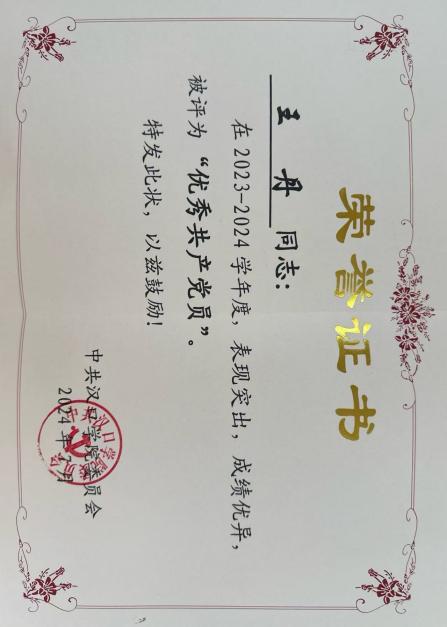 荣誉证书
王丹 同志：
在2023-2024学年度，表现突出，成绩优异，
被评为“优秀共产党员”。
特发此状，以兹鼓励！
中共汉口学院委员会
2024年7月